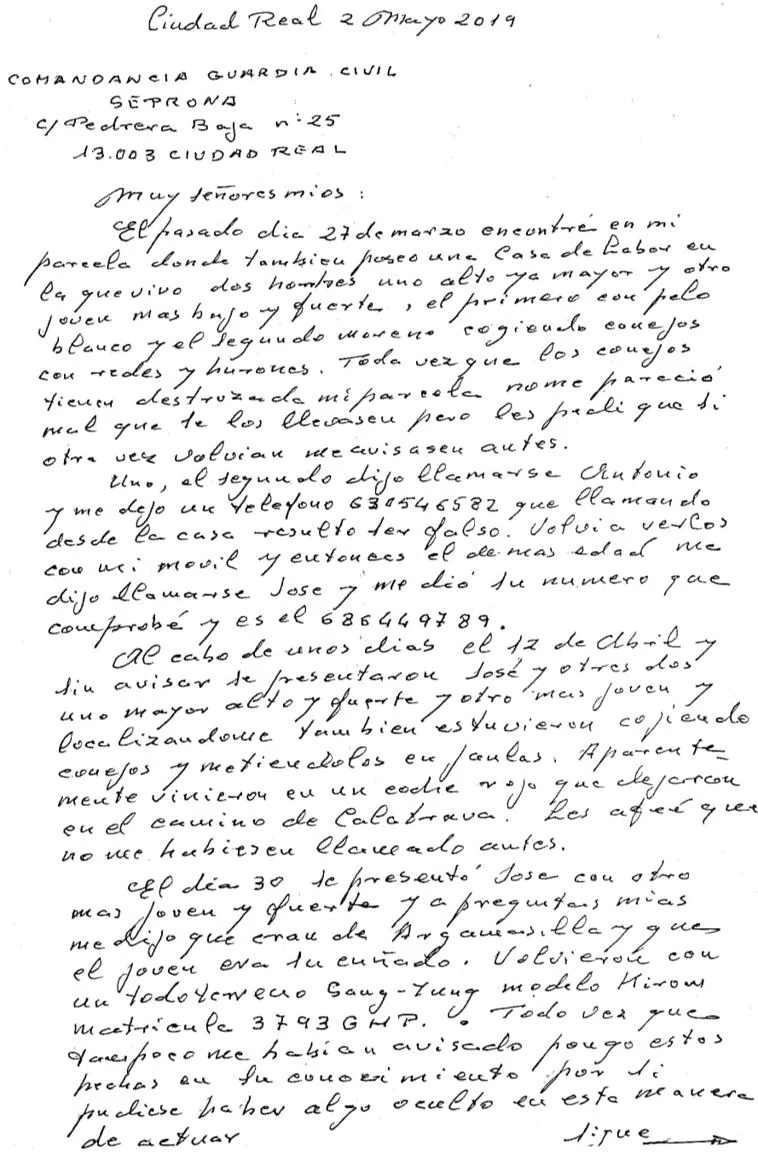 Ciudad Real 2 Mayo 2019
COMANDANCIA GUARDIA CIVIL
SEPRONA
c/ Pedrera Baja nº 25
13.003 CIUDAD REAL
Muy señores mios :
El pasado dia 27 de marzo encontré en mi
parcela donde tambien poseo una Casa de Labor en
la que vivo dos hombres, uno alto ya mayor y otro
joven mas bajo y fuerte, el primero con pelo
blanco y el segundo moreno cogiendo conejos
con redes y hurones. Toda vez que los conejos
tienen destruzada mi parcela no me pareció
mal que se los llevasen pero les pedi que si
otra vez volvian me avisasen antes.
Uno, el segundo dijo llamarse Antonio
y me dejo un telefono 630546582 que llamando
desde la casa resulto ser falso. Volvi a verlos
con mi movil y entonces el de mas edad me
dijo llamarse Jose y me dió su numero que
comprobé y es el 686449789.
Al cabo de unos dias el 12 de Abril y
sin avisar se presentaron José y otros dos
uno mayor alto y fuerte y otro mas joven y
localizandome tambien estuvieron cogiendo
conejos y metiendolos en jaulas. Aparente-
mente vinieron en un coche rojo que dejaron
en el camino de Calatrava. Les afeé que
no me hubiesen llamado antes.
El dia 30 se presentó Jose con otro
mas joven y fuerte y a preguntas mias
me dijo que eran de Argamasilla y que
el joven era su cuñado. Volvieron con
un todoterreno Sang-Yung modelo Kirom
matricula 3793 GHP. Todo vez que
tampoco me habian avisado pongo estos
hechos en su conocimiento por si
pudiese haber algo oculto en esta manera
de actuar sigue